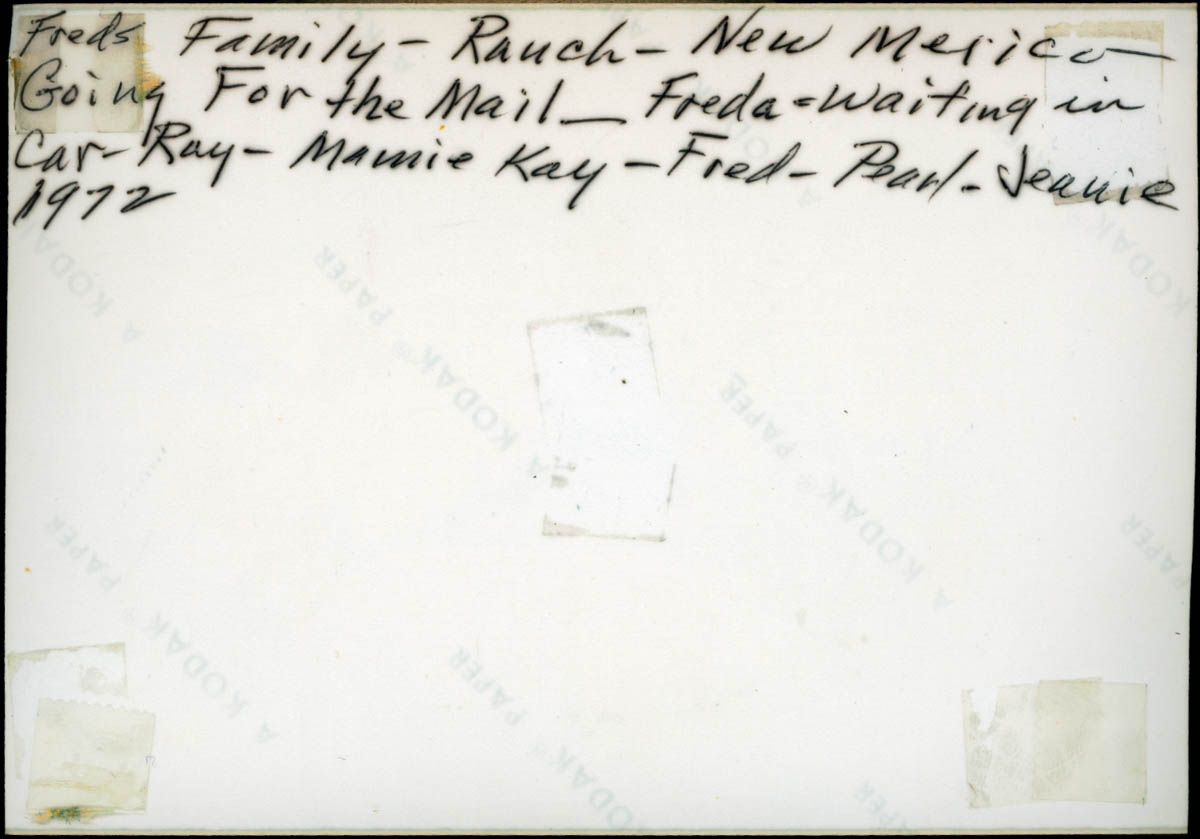 Freds Family - Ranch - New Mexico -
Going For the Mail _ Freda = waiting in
Car - Ray - Mamie Kay - Fred - Pearl - Jeanie
1972
A KODAK® PAPER
A KODAK® PAPER
A KODAK® PAPER
A KODAK® PAPER
A KODAK
KODAK®
KODAK® PAPER
PAPER
PAPER